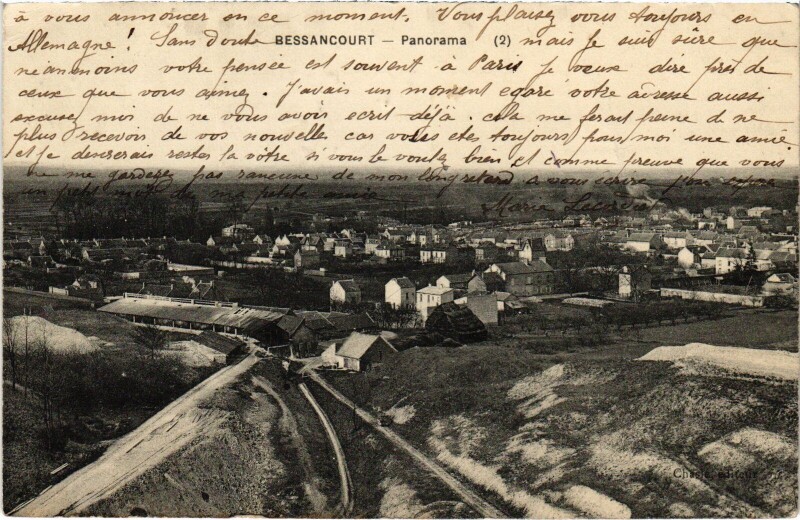 à vous annoncer en ce moment. Vous plaisez vous toujours en
Allemagne! Sans doute
BESSANCOURT — Panorama (2)
mais je suis sûre que
néanmoins votre pensée est souvent à Paris je veux dire près de
ceux que vous aimez. J'avais un moment égaré votre adresse aussi
excusez moi de ne vous avoir écrit déjà. cela me ferait peine d ne
plus recevoir de vos nouvelles car vous etes toujours pour moi une amie.
et je desirerais rester la vôtre si vous le voulez bien, et comme preuve que vous
ne me gardez pas rancune de mon long retard à vous écrire
un petit mot de ma petite amie
Marie